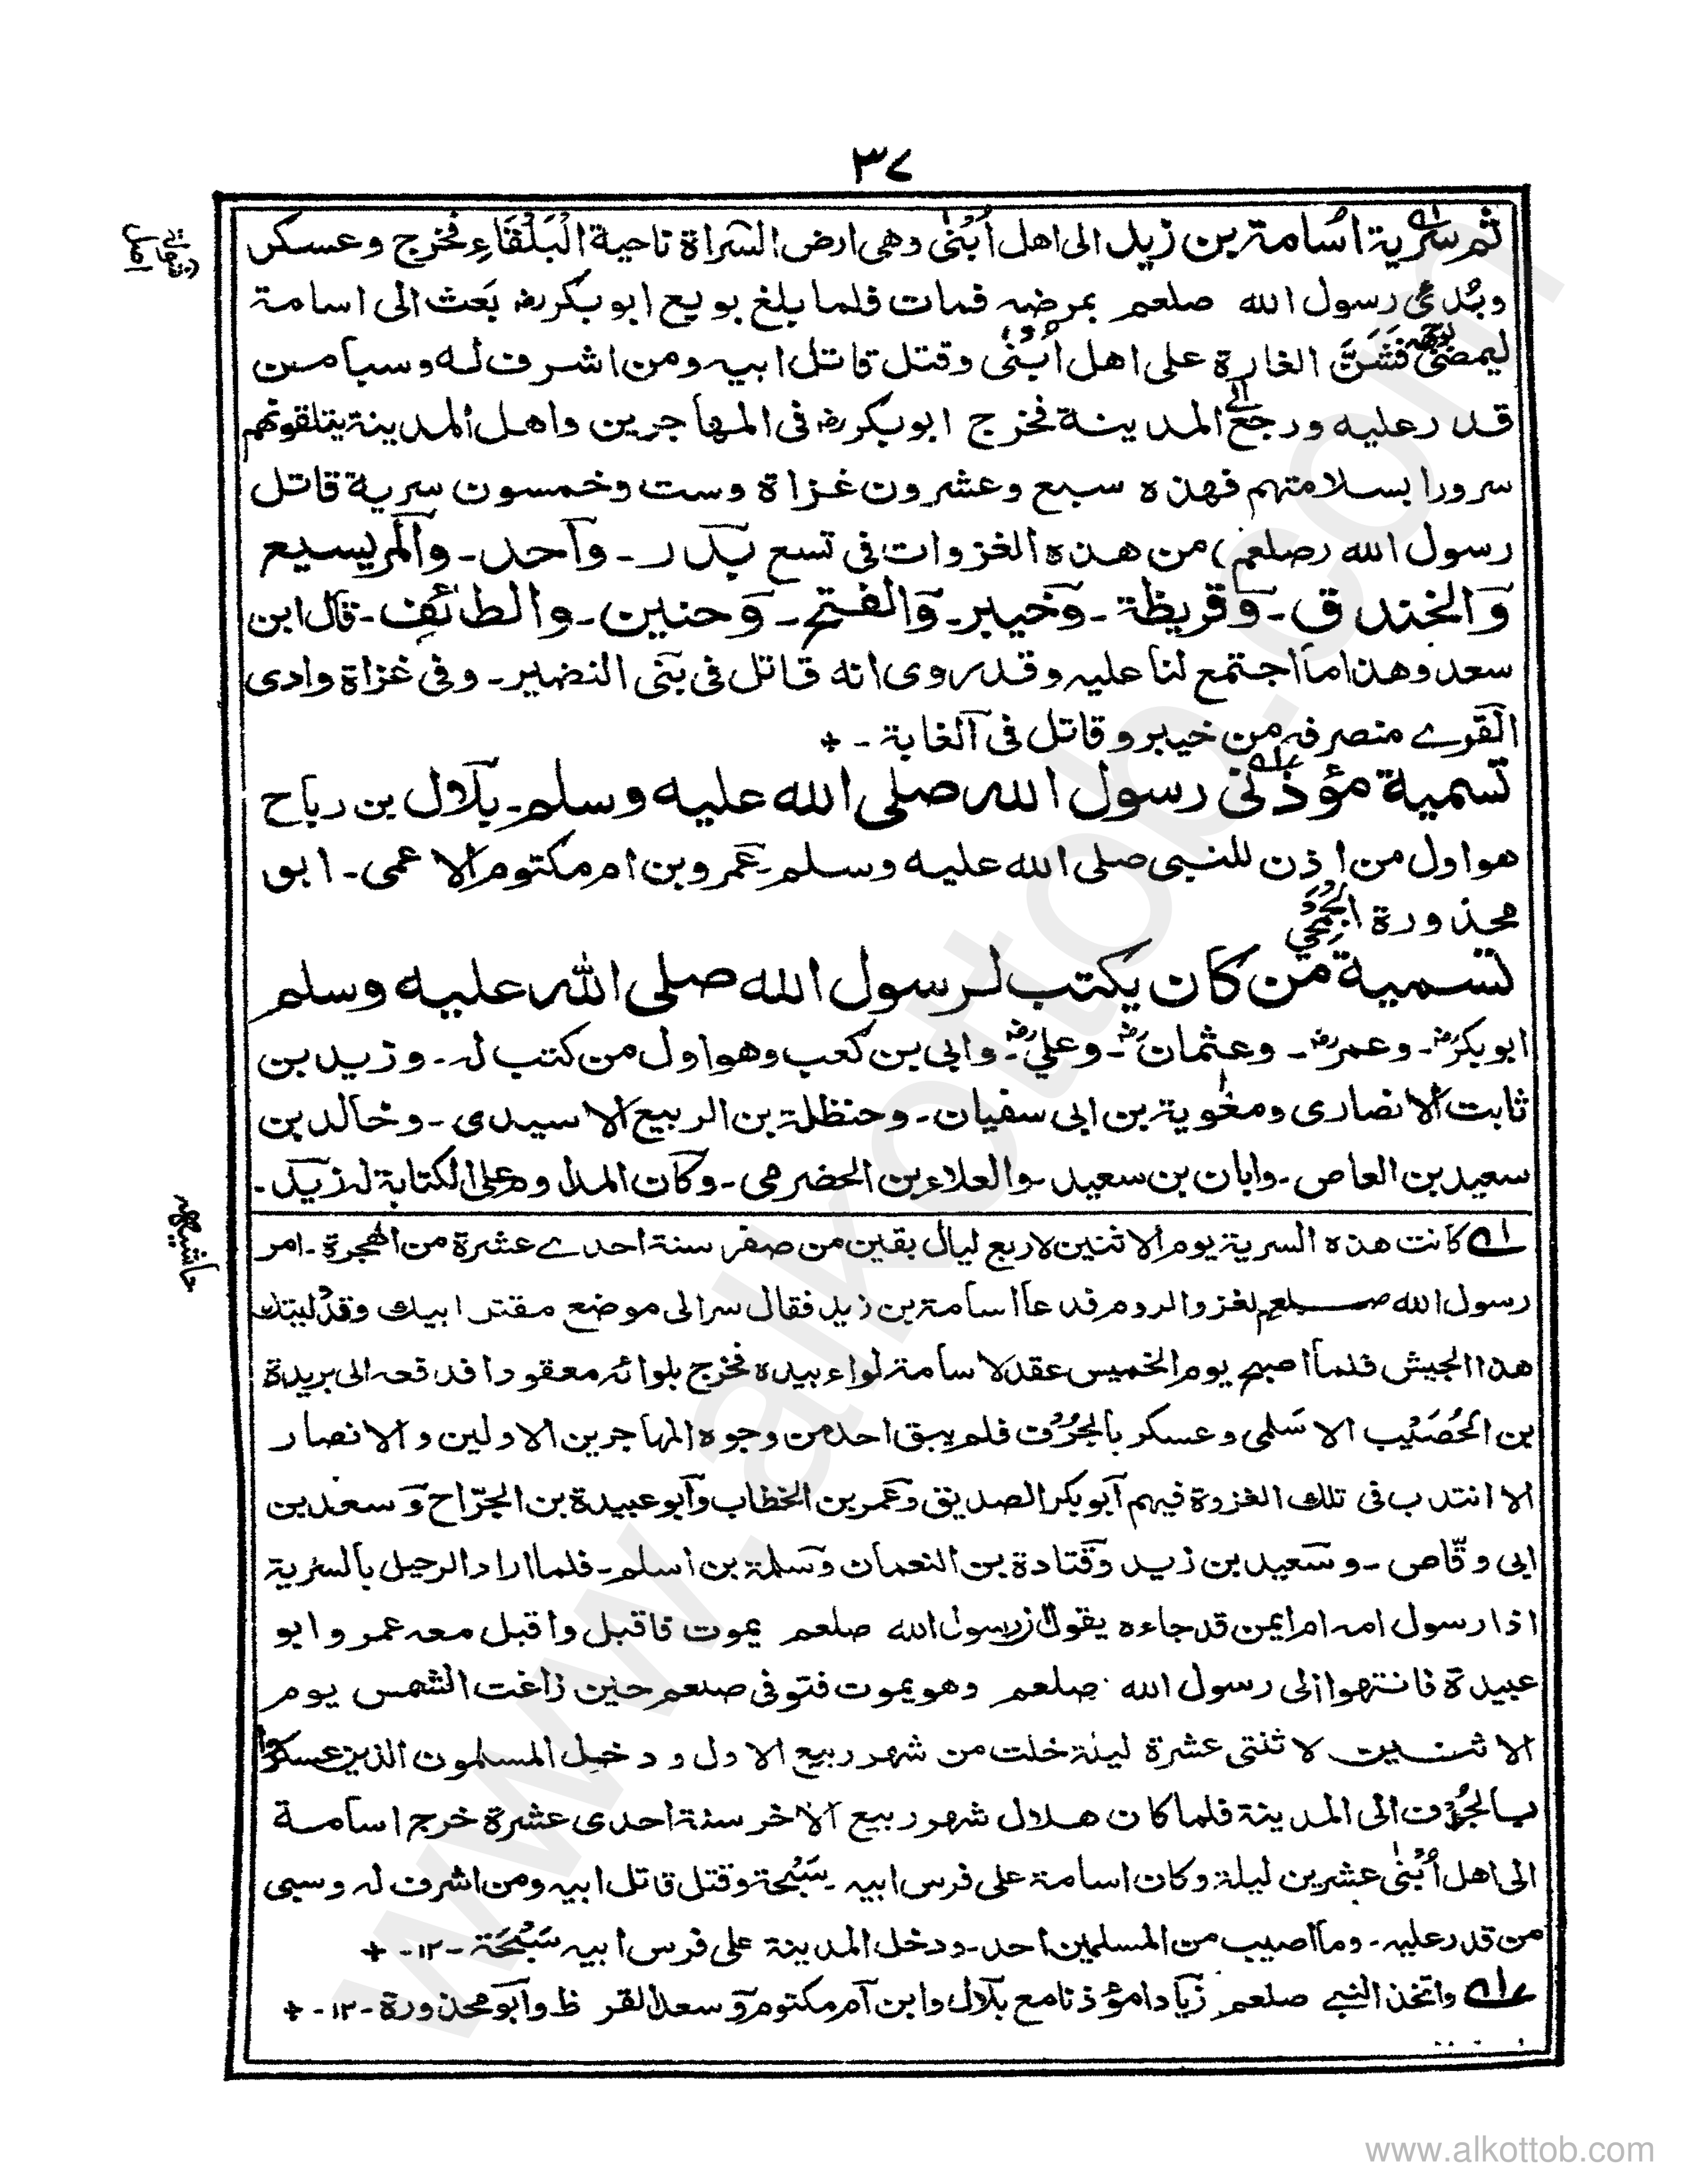 ٣٧
ثم سرية اُسامة بن زيد الى اهل اُبْنٰى وهى ارض الشراة ناحية الْبَلْقَاءِ فخرج وعسكر
وبُدئ رسول الله صلعم بمرضه فمات فلما بلغ بويع ابو بكر رض بَعث الى اسامة
ليمضى فَشَنَّ الغارة على اهل اُبْنٰى وقتل قاتل ابيه ومن اشرف له وسبا من
قدر عليه ورجع الى المدينة فخرج ابو بكر رض فى المهاجرين واهل المدينة يتلقونهم
سرورا بسلامتهم فهذه سبع وعشرون غزاة وست وخمسون سرية قاتل
رسول الله (صلعم) من هذه الغزوات فى تسع بدر ـ واحد ـ والمريسيع
والخندق ـ وقريظة ـ وخيبر ـ والفتح ـ وحنين ـ والطائف ـ قال ابن
سعد وهذا ما اجتمع لنا عليه وقد روى انه قاتل فى بنى النضير ـ وفى غزاة وادى
القرے منصرفه من خيبر وقاتل فى الغابة ـ +
تسمية مؤذنى رسول الله صلى الله عليه وسلم ـ بلال بن رباح
هو اول من اذن للنبى صلى الله عليه وسلم ـ عمرو بن ام مكتوم الاعمى ـ ابو
محذورة الجُمَحِي
تسمية من كان يكتب لرسول الله صلى الله عليه وسلم
ابو بكر رض ـ وعمر رض ـ وعثمان رض ـ وعلي رض ـ وابى بن كعب وهو اول من كتب له ـ وزيد بن
ثابت الانصارى ومعٰوية بن ابى سفيان ـ وحنظلة بن الربيع الاسيدى ـ وخالد بن
سعيد بن العاص ـ وابان بن سعيد ـ والعلاء بن الحضرمى ـ وكان المداوم على الكتابة له زيد ـ
حاشيه
١ـ كانت هذه السرية يوم الاثنين لاربع ليال بقين من صفر سنة احدے عشرة من الهجرة ـ امر
رسول الله صلعم لغزو الروم فدعا اسامة بن زيد فقال سر الى موضع مقتل ابيك وقد وليتك
هذا الجيش فلما اصبح يوم الخميس عقد لاسامة لواء بيده فخرج بلوائه معقودا فدفعه الى بريدة
بن الحُصَيْب الاسَلمى وعسكر بالجُرُف فلم يبق احد من وجوه المهاجرين الاولين والانصار
الا انتدب فى تلك الغزوة فيهم ابو بكر الصديق وعمر بن الخطاب وابو عبيدة بن الجرّاح وسعد بن
ابى وقّاص ـ وسعيد بن زيد وقتادة بن النعمان وسلمة بن اسلم ـ فلما اراد الرحيل بالسرية
اذا رسول امه ام ايمن قد جاءه يقول ان رسول الله صلعم يموت فاقبل واقبل معه عمر وابو
عبيدة فانتهوا الى رسول الله صلعم وهو يموت فتوفى صلعم حين زاغت الشمس يوم
الاثنين لاثنتى عشرة ليلة خلت من شهر ربيع الاول ودخل المسلمون الذين عسكروا
بالجُرُف الى المدينة فلما كان هلال شهر ربيع الاخر سنة احدى عشرة خرج اسامة
الى اهل اُبْنٰى عشرين ليلة وكان اسامة على فرس ابيه ـ سَبْحة وقتل قاتل ابيه ومن اشرف له وسبى
من قدر عليه ـ وما اصيب من المسلمين احد ـ ودخل المدينة على فرس ابيه سَبْحَة ـ ١٢ ـ +
٢ـ واتخذ النبے صلعم زيادا مؤذنا مع بلال وابن ام مكتوم وسعد القرظ وابو محذورة ـ ١٢ ـ +
www.alkottob.com
www.alkottob.com